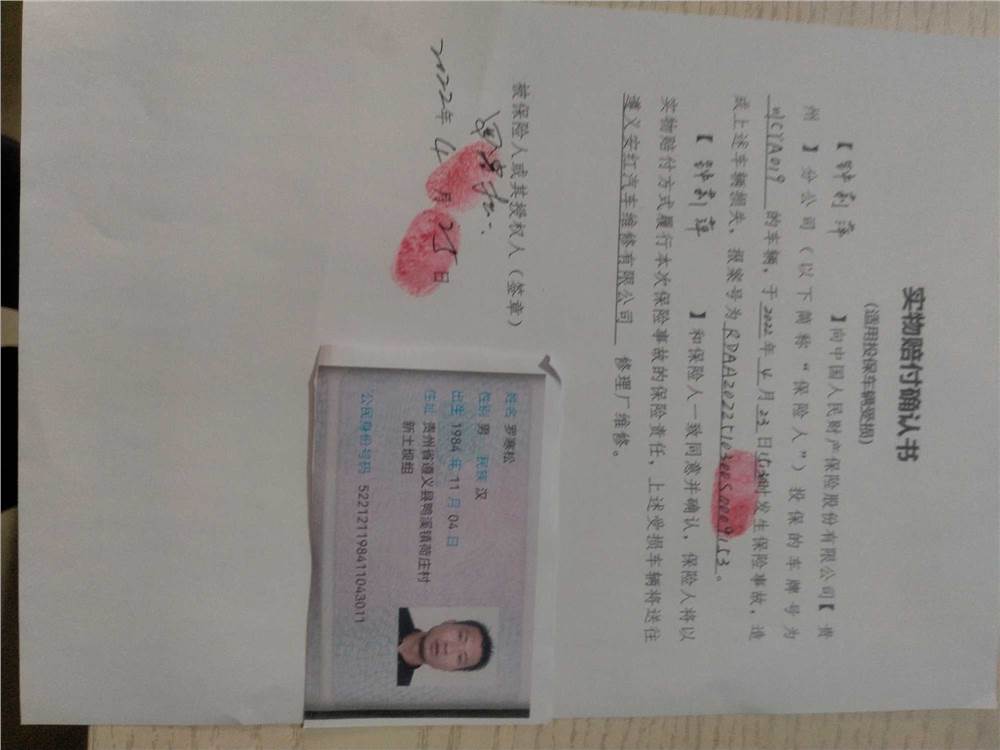 实物赔付确认书
（适用投保车辆受损）
【 钟利萍 】向中国人民财产保险股份有限公司【 贵
州 】分公司（以下简称“保险人”）投保的车牌号为
的车辆，于 2022 年 4 月 23 日 时发生保险事故，造
成上述车辆损失，报案号为 。
【 钟利萍 】和保险人一致同意并确认，保险人将以
实物赔付方式履行本次保险事故的保险责任，上述受损车辆将送往
遵义安红汽车维修有限公司 修理厂维修。
被保险人或其授权人（签章）
2022年 4 月 25 日
姓名 罗寒松
性别 男 民族 汉
出生 1984 年 11 月 04 日
住址 贵州省遵义县鸭溪镇荷庄村
新土坝组
公民身份号码 522121198411043011